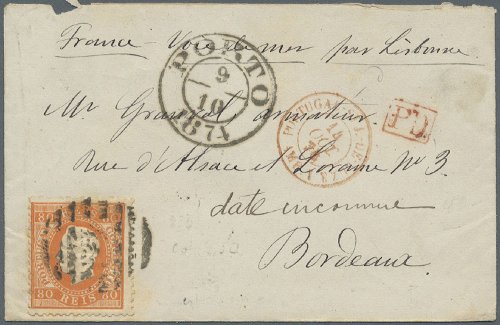 France Voie de mer par Lisbonne
PORTO
9
10
1871
Mr armateur
PORTUGAL
14
OCT
PD.
Rue d'Alsace et Loraine No 3
date inconnue
Bordeaux
80 80
REIS